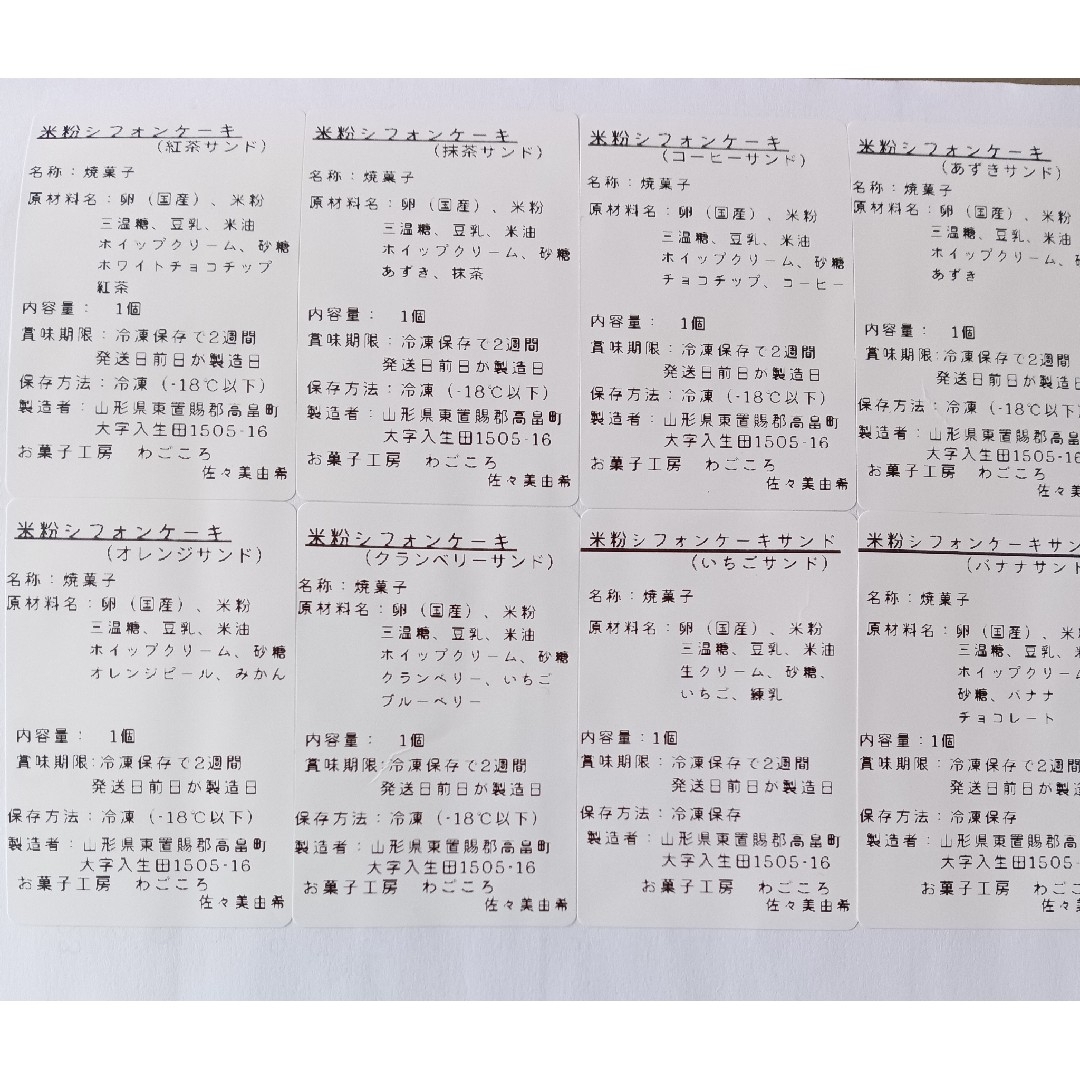 米粉シフォンケーキ
(紅茶サンド)
名称：焼菓子
原材料名：卵（国産）、米粉
三温糖、豆乳、米油
ホイップクリーム、砂糖
ホワイトチョコチップ
紅茶
内容量： 1個
賞味期限：冷凍保存で2週間
発送日前日が製造日
保存方法：冷凍（-18℃以下）
製造者：山形県東置賜郡高畠町
大字入生田1505-16
お菓子工房 わごころ
佐々美由希
米粉シフォンケーキ
(抹茶サンド)
名称：焼菓子
原材料名：卵（国産）、米粉
三温糖、豆乳、米油
ホイップクリーム、砂糖
あずき、抹茶
内容量： 1個
賞味期限：冷凍保存で2週間
発送日前日が製造日
保存方法：冷凍（-18℃以下）
製造者：山形県東置賜郡高畠町
大字入生田1505-16
お菓子工房 わごころ
佐々美由希
米粉シフォンケーキ
(コーヒーサンド)
名称：焼菓子
原材料名：卵（国産）、米粉
三温糖、豆乳、米油
ホイップクリーム、砂糖
チョコチップ、コーヒー
内容量： 1個
賞味期限：冷凍保存で2週間
発送日前日が製造日
保存方法：冷凍（-18℃以下）
製造者：山形県東置賜郡高畠町
大字入生田1505-16
お菓子工房 わごころ
佐々美由希
米粉シフォンケーキ
(あずきサンド)
名称：焼菓子
原材料名：卵（国産）、米粉
三温糖、豆乳、米油
ホイップクリーム、砂
あずき
内容量： 1個
賞味期限：冷凍保存で2週間
発送日前日が製造日
保存方法：冷凍（-18℃以下
製造者：山形県東置賜郡高畠
大字入生田1505-16
お菓子工房 わごころ
佐々美
米粉シフォンケーキ
(オレンジサンド)
名称：焼菓子
原材料名：卵（国産）、米粉
三温糖、豆乳、米油
ホイップクリーム、砂糖
オレンジピール、みかん
内容量： 1個
賞味期限：冷凍保存で2週間
発送日前日が製造日
保存方法：冷凍（-18℃以下）
製造者：山形県東置賜郡高畠町
大字入生田1505-16
お菓子工房 わごころ
佐々美由希
米粉シフォンケーキ
(クランベリーサンド)
名称：焼菓子
原材料名：卵（国産）、米粉
三温糖、豆乳、米油
ホイップクリーム、砂糖
クランベリー、いちご
ブルーベリー
内容量： 1個
賞味期限：冷凍保存で2週間
発送日前日が製造日
保存方法：冷凍（-18℃以下）
製造者：山形県東置賜郡高畠町
大字入生田1505-16
お菓子工房 わごころ
佐々美由希
米粉シフォンケーキサンド
(いちごサンド)
名称：焼菓子
原材料名：卵（国産）、米粉
三温糖、豆乳、米油
生クリーム、砂糖、
いちご、練乳
内容量：1個
賞味期限：冷凍保存で2週間
発送日前日が製造日
保存方法：冷凍保存
製造者：山形県東置賜郡高畠町
大字入生田1505-16
お菓子工房 わごころ
佐々美由希
米粉シフォンケーキサン
(バナナサンド
名称：焼菓子
原材料名：卵（国産）、米
三温糖、豆乳、米
ホイップクリーム
砂糖、バナナ
チョコレート
内容量：1個
賞味期限：冷凍保存で2週間
発送日前日が製造
保存方法：冷凍保存
製造者：山形県東置賜郡高畠
大字入生田1505-
お菓子工房 わごこ
佐々美